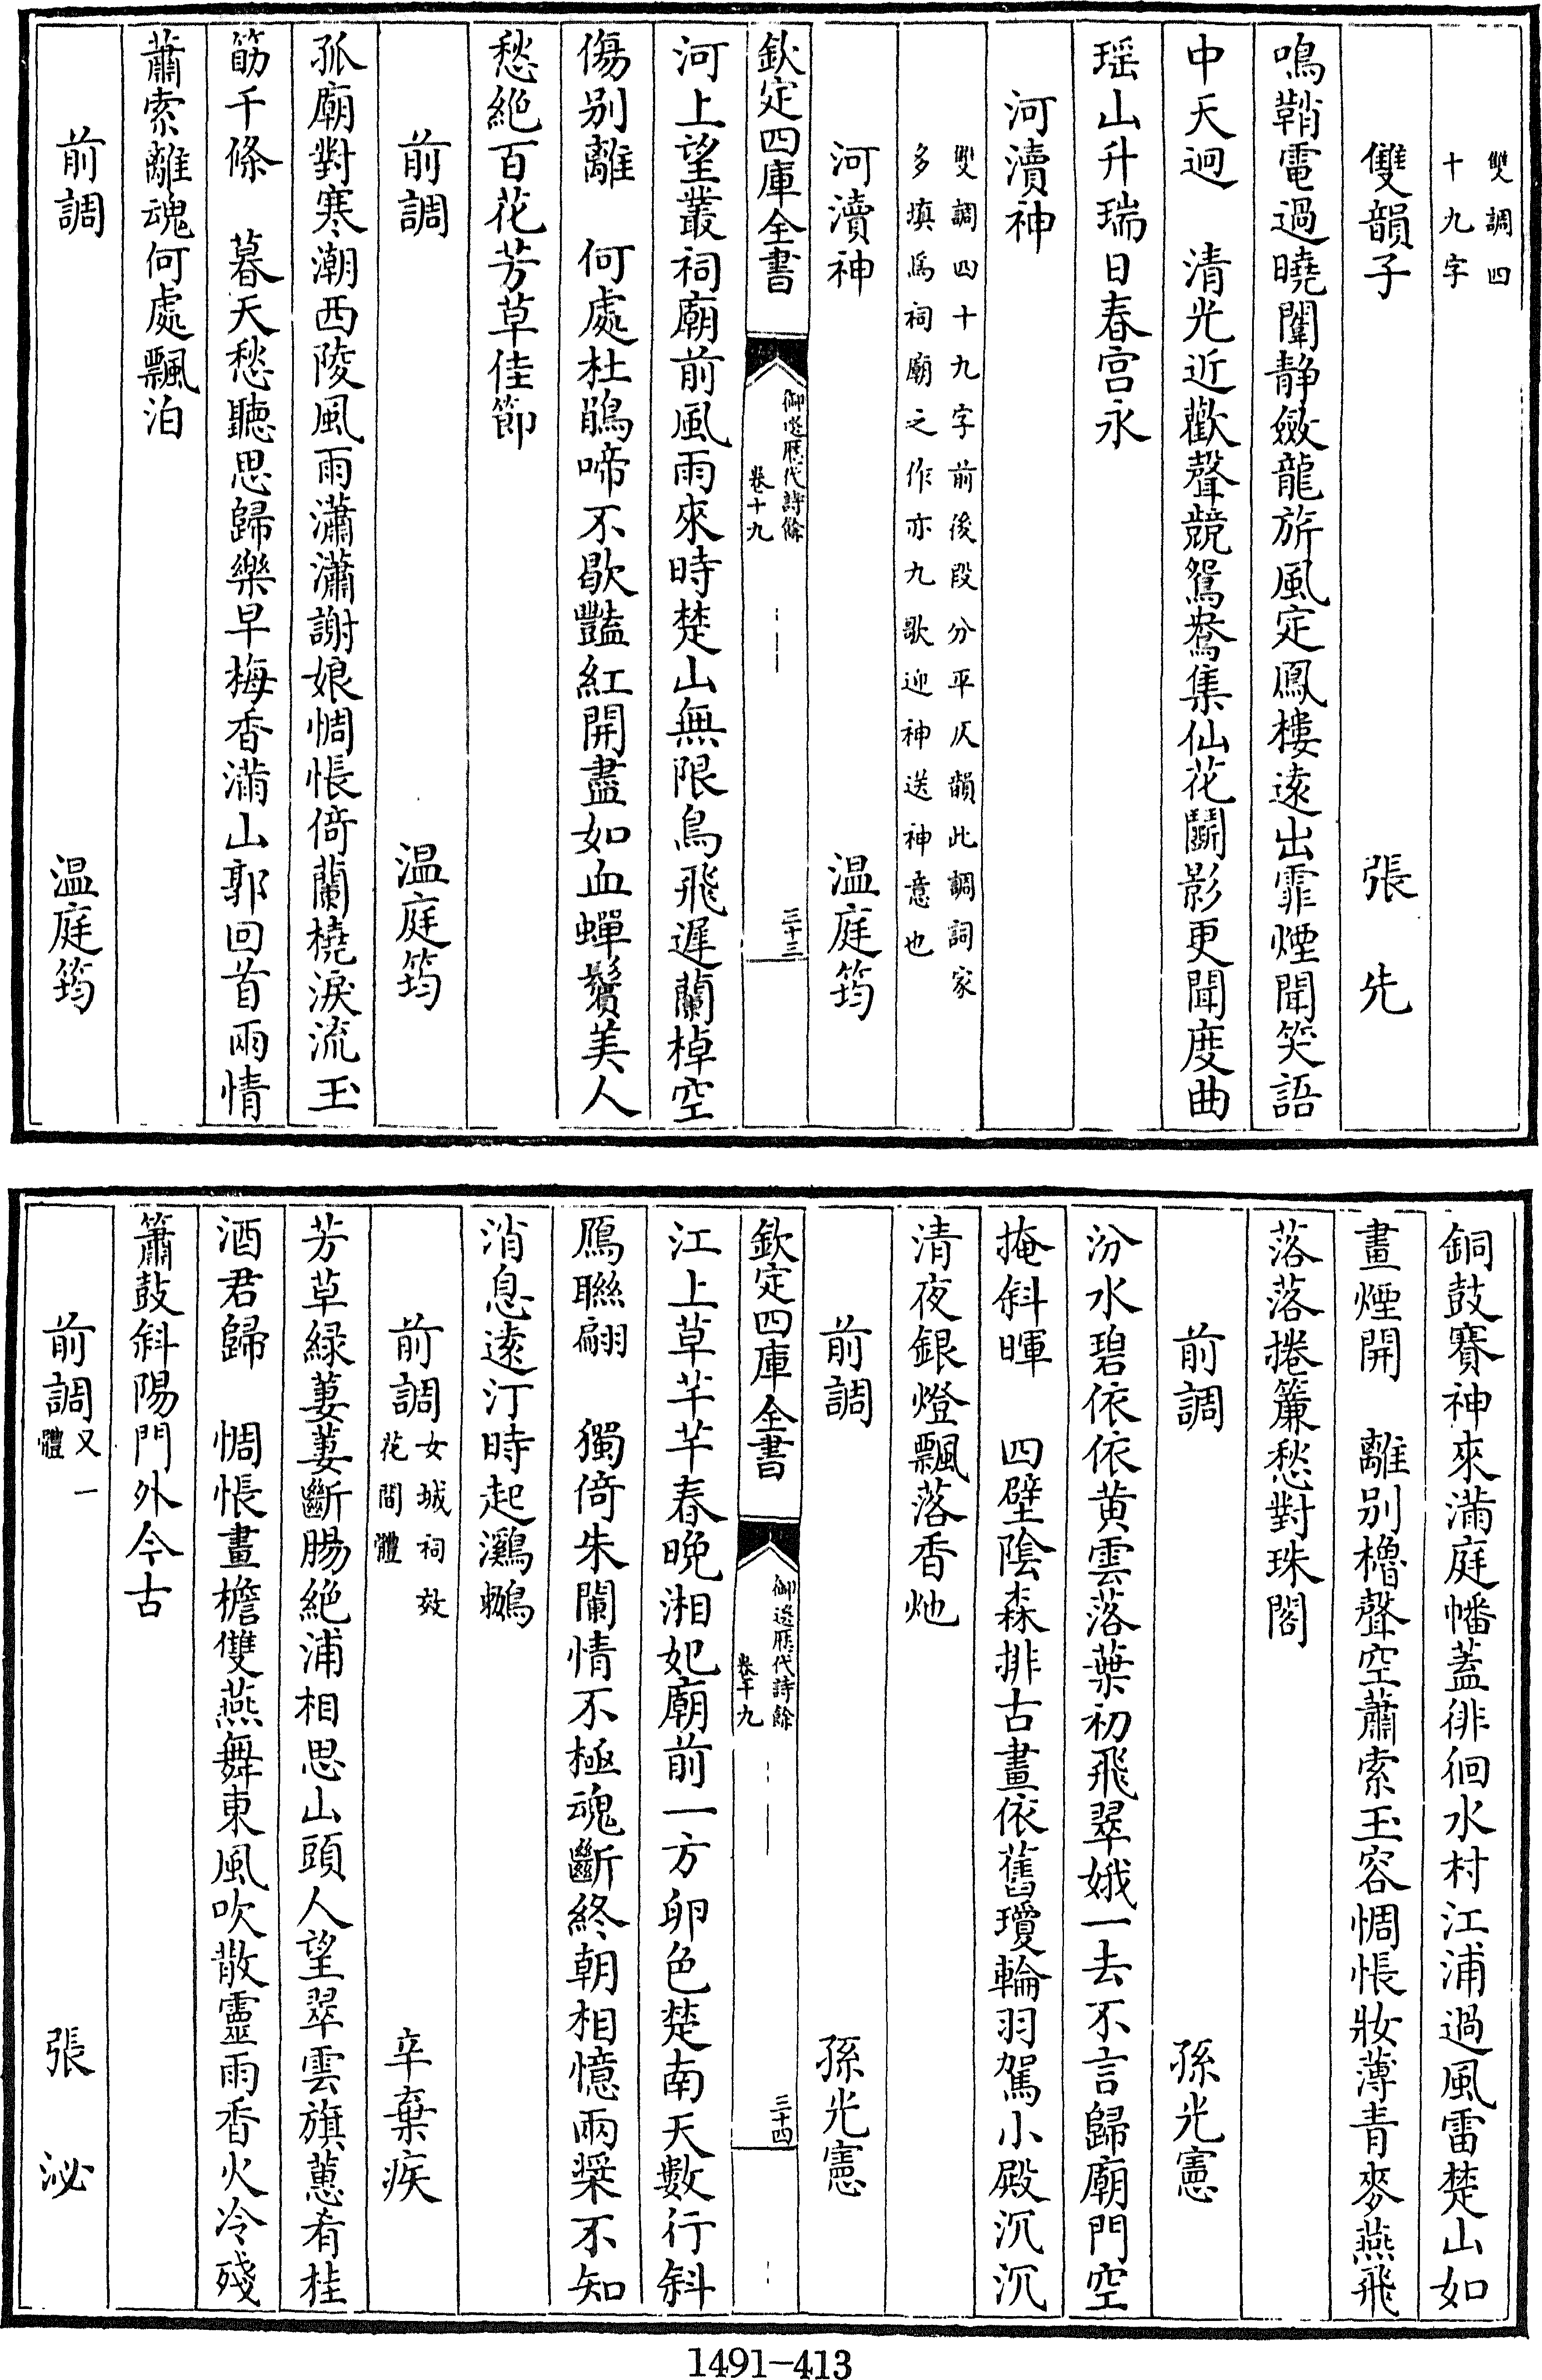 雙調四
十九字
雙韻子　張先
鳴鞘電過曉闈静斂龍旂風定鳳樓遠出霏煙聞笑語
中天迥　清光近歡聲競鴛鴦集仙花鬭影更聞度曲
瑶山升瑞日春宫永
河瀆神
雙調四十九字前後段分平仄韻此調詞家
多填為祠廟之作亦九歌迎神送神意也
河瀆神　温庭筠
欽定四庫全書
御選歷代詩餘
卷十九
三十三
河上望叢祠廟前風雨來時楚山無限鳥飛遲蘭棹空
傷别離　何處杜鵑啼不歇豔紅開盡如血蟬鬢美人
愁絶百花芳草佳節
前調　温庭筠
孤廟對寒潮西陵風雨瀟瀟謝娘惆悵倚蘭橈淚流玉
筯千條　暮天愁聽思歸樂早梅香滿山郭回首兩情
蕭索離魂何處飄泊
前調　温庭筠
銅鼓賽神來滿庭幡蓋徘徊水村江浦過風雷楚山如
畫煙開　離别櫓聲空蕭索玉容惆悵妝薄青麥燕飛
落落捲簾愁對珠閣
前調　孫光憲
汾水碧依依黄雲落葉初飛翠娥一去不言歸廟門空
掩斜暉　四壁陰森排古畫依舊瓊輪羽駕小殿沉沉
清夜銀燈飄落香灺
前調　孫光憲
欽定四庫全書
御選歷代詩餘
卷十九
三十四
江上草芊芊春晚湘妃廟前一方卵色楚南天數行斜
鴈聯翩　獨倚朱闌情不極魂斷終朝相憶兩槳不知
消息遠汀時起鸂鷘
前調　女城祠效
花間體　辛棄疾
芳草緑萋萋斷腸絶浦相思山頭人望翠雲旗蕙肴桂
酒君歸　惆悵畫檐雙燕舞東風吹散靈雨香火冷殘
簫鼓斜陽門外今古
前調　又一
體　張泌
1491-413